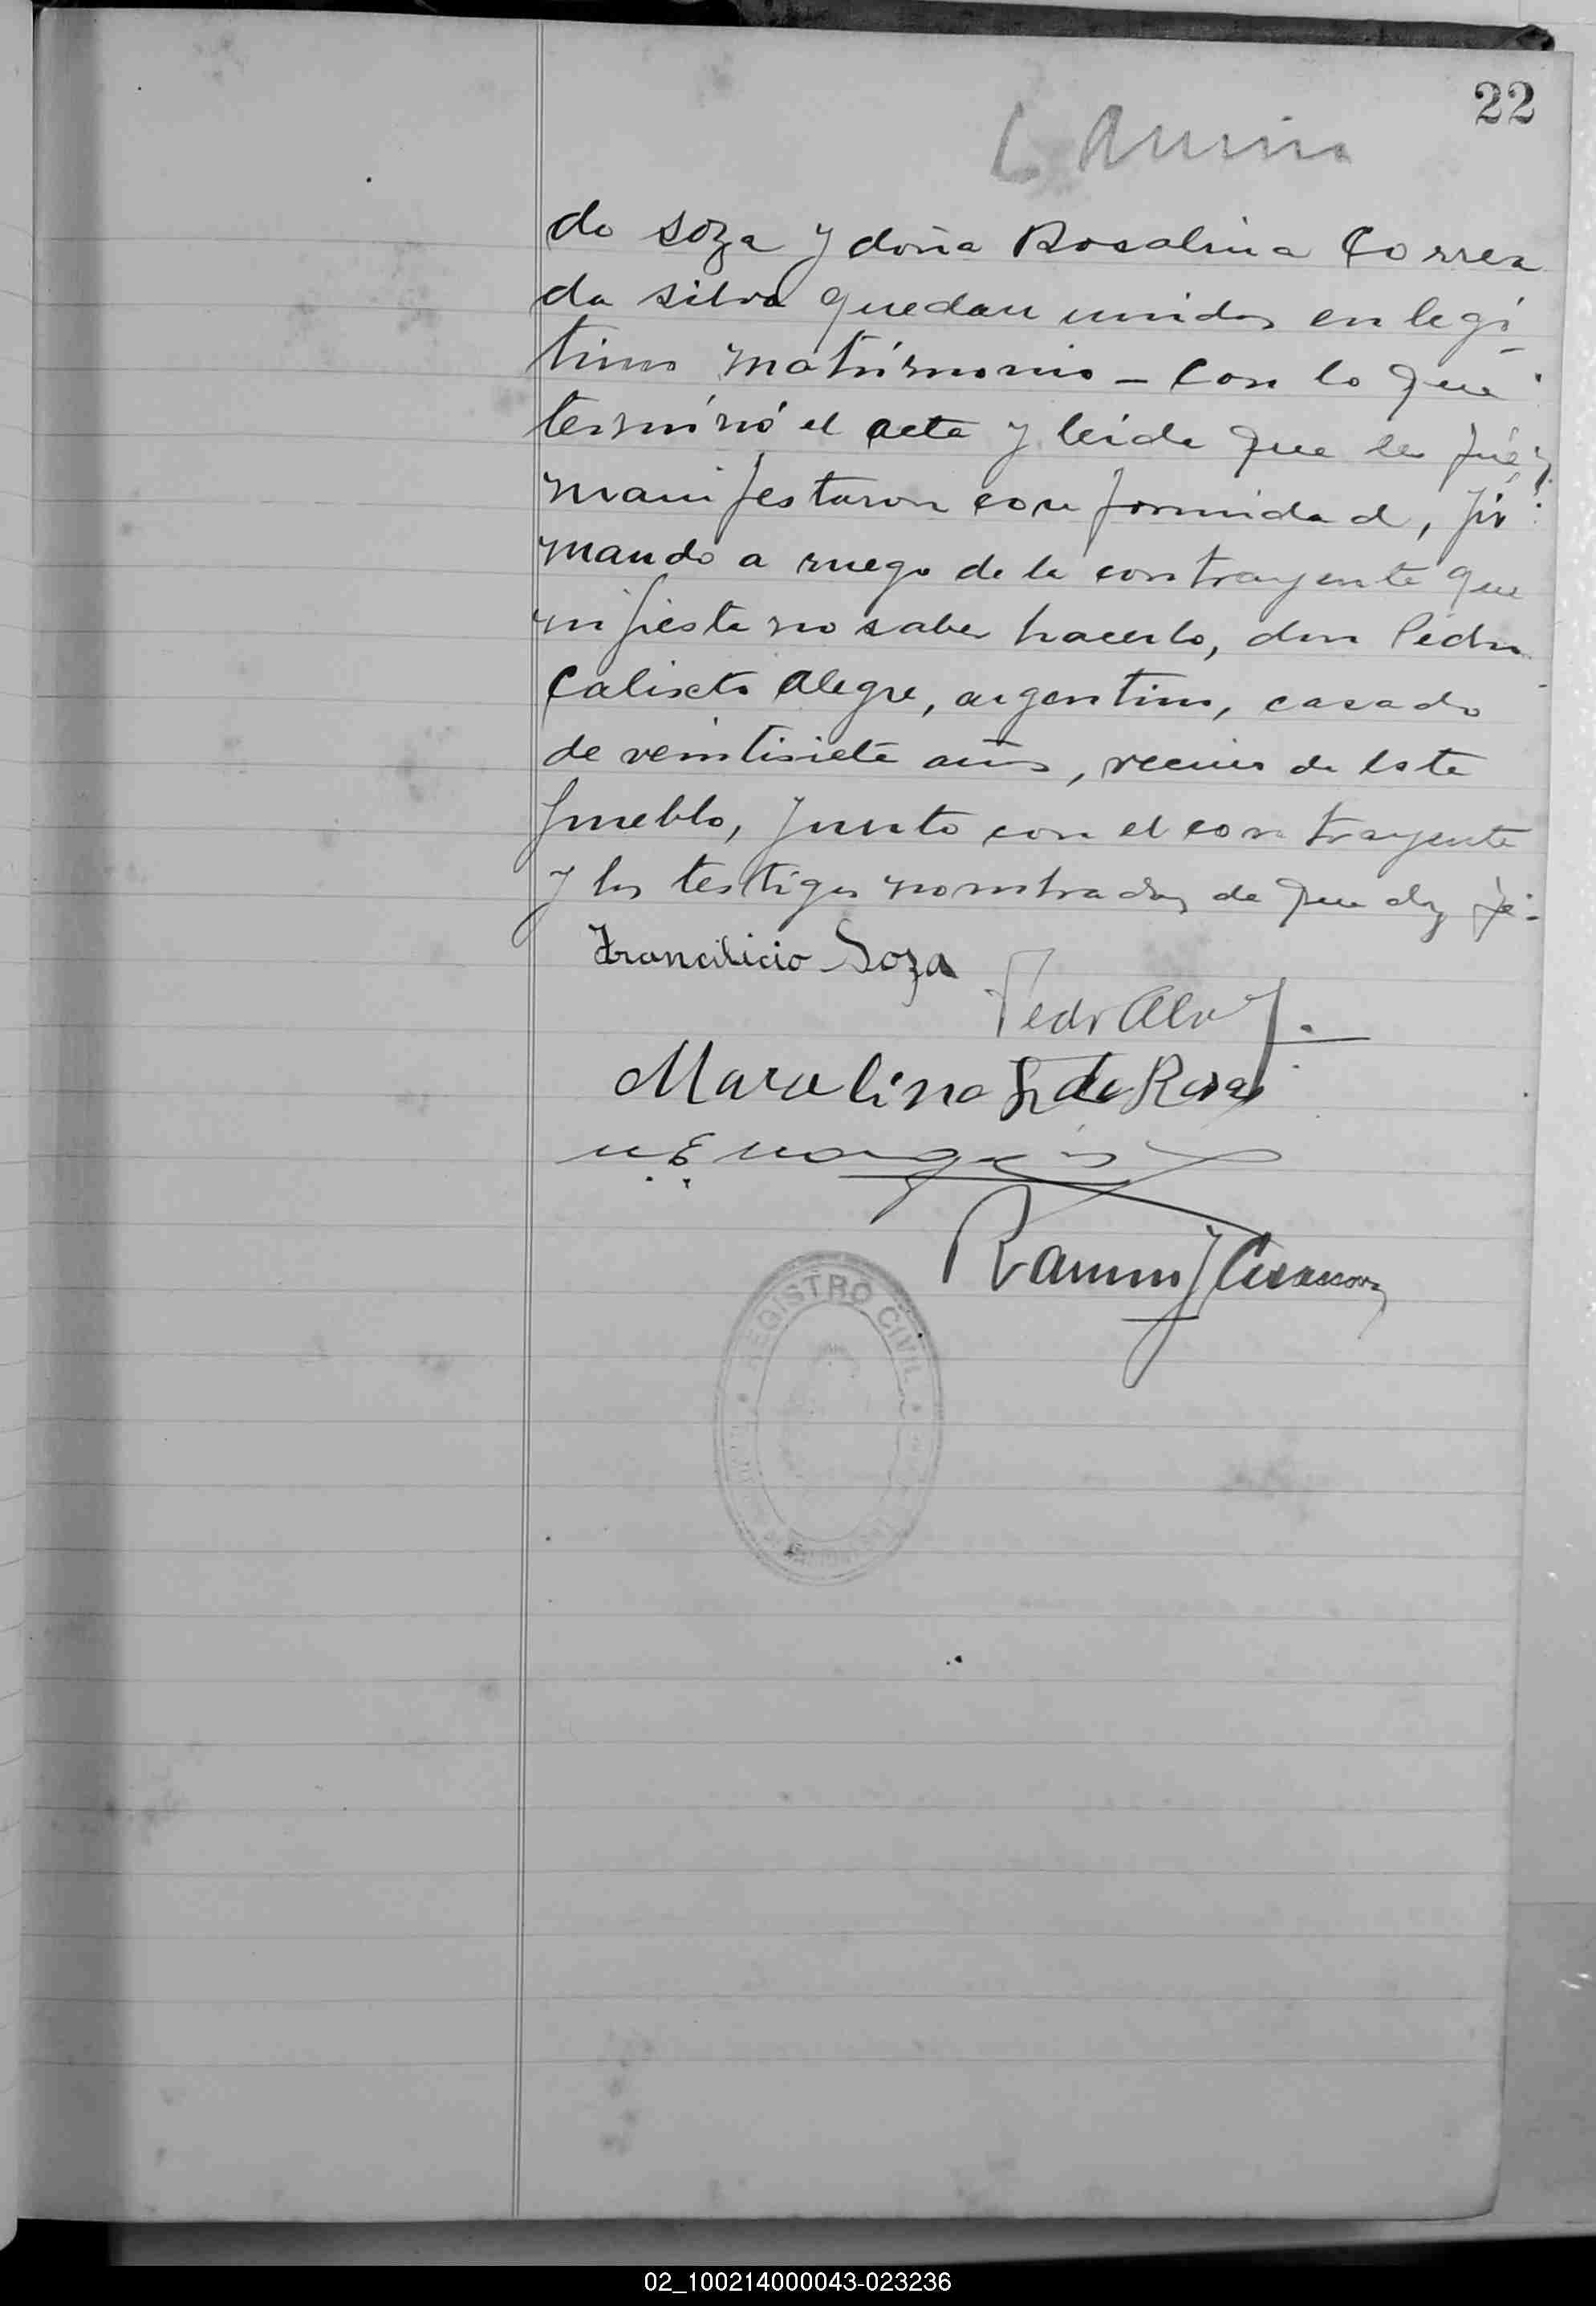 22
do soza y doña Rosalina Correa
da silva quedan unidos en legi
timo matrimonio - Con lo que
terminó el acta y leida que les fué,
manifestaron conformidad, fir
mando a ruego de la contrayente que
nifiesta no saber hacerlo, don Pedro
Calixto Alegre, argentino, casado
de veintisiete años, vecino de este
pueblo, junto con el contrayente
y los testigos nombrados de que doy fé.
Francilicio Soza
Marcelina de Rosas
Ramon J Casanova
REGISTRO CIVIL
02_100214000043-023236